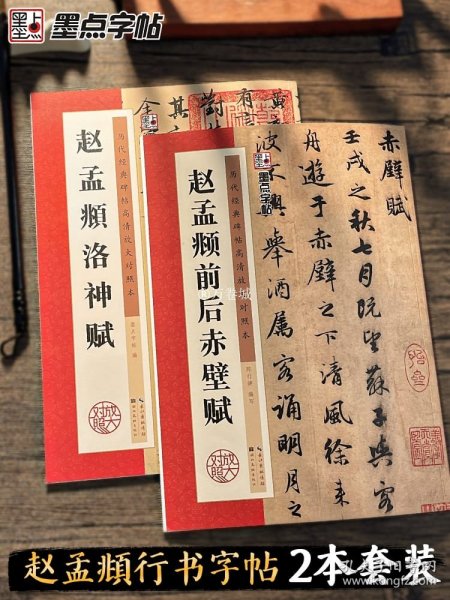 墨点 墨点字帖
赵孟頫洛神赋
历代经典碑帖高清放大对照本
墨点字帖 编
放大对照
墨点字帖
赵孟頫前后赤壁赋
历代经典碑帖高清放大对照本
放大对照
赤壁賦
壬戌之秋七月既望蘇子與客
舟遊于赤壁之下清風徐来
波不興舉酒属客誦明月之
赵孟頫行书字帖 2本套装